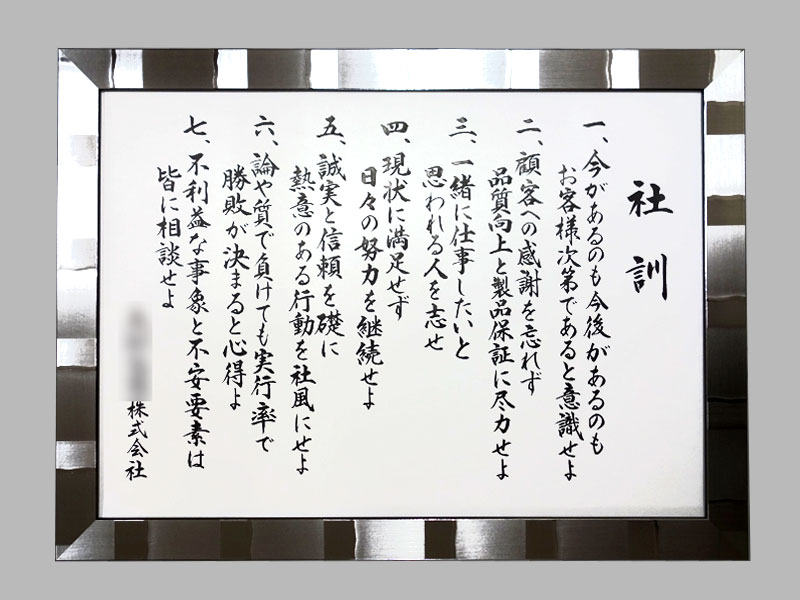 社訓
一、今があるのも今後があるのも
お客様次第であると意識せよ
二、顧客への感謝を忘れず
品質向上と製品保証に尽力せよ
三、一緒に仕事したいと
思われる人を志せ
四、現状に満足せず
日々の努力を継続せよ
五、誠実と信頼を礎に
熱意のある行動を社風にせよ
六、論や質で負けても実行率で
勝敗が決まると心得よ
七、不利益な事象と不安要素は
皆に相談せよ
株式会社